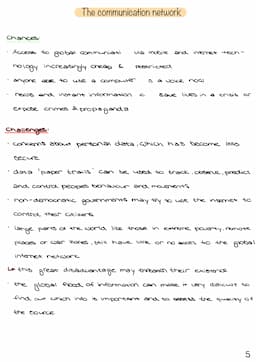 The communication network
Chances:
· Access to global communicati via mobile and internet tech-
nology increasingly cheap & restricted
· anyone able to use a computer is a voice now
· and instant information save lives in a crisis or
expose crimes & propaganda
Challenges:
· concerns about personal data, which has become less
secure
· data 'paper trails' can be used to track, observe, predict
and control peoples behaviour and movements
· non-democratic governments may try to use the internet to
control their citizens
· large parts of the world, like those in extreme poverty, remote
places or war zones, still have little or no access to the global
internet network
↳ this great disadvantage may their existence
· the global flood of information can make it very difficult to
find out which info is important and to assess the quality of
the source
5